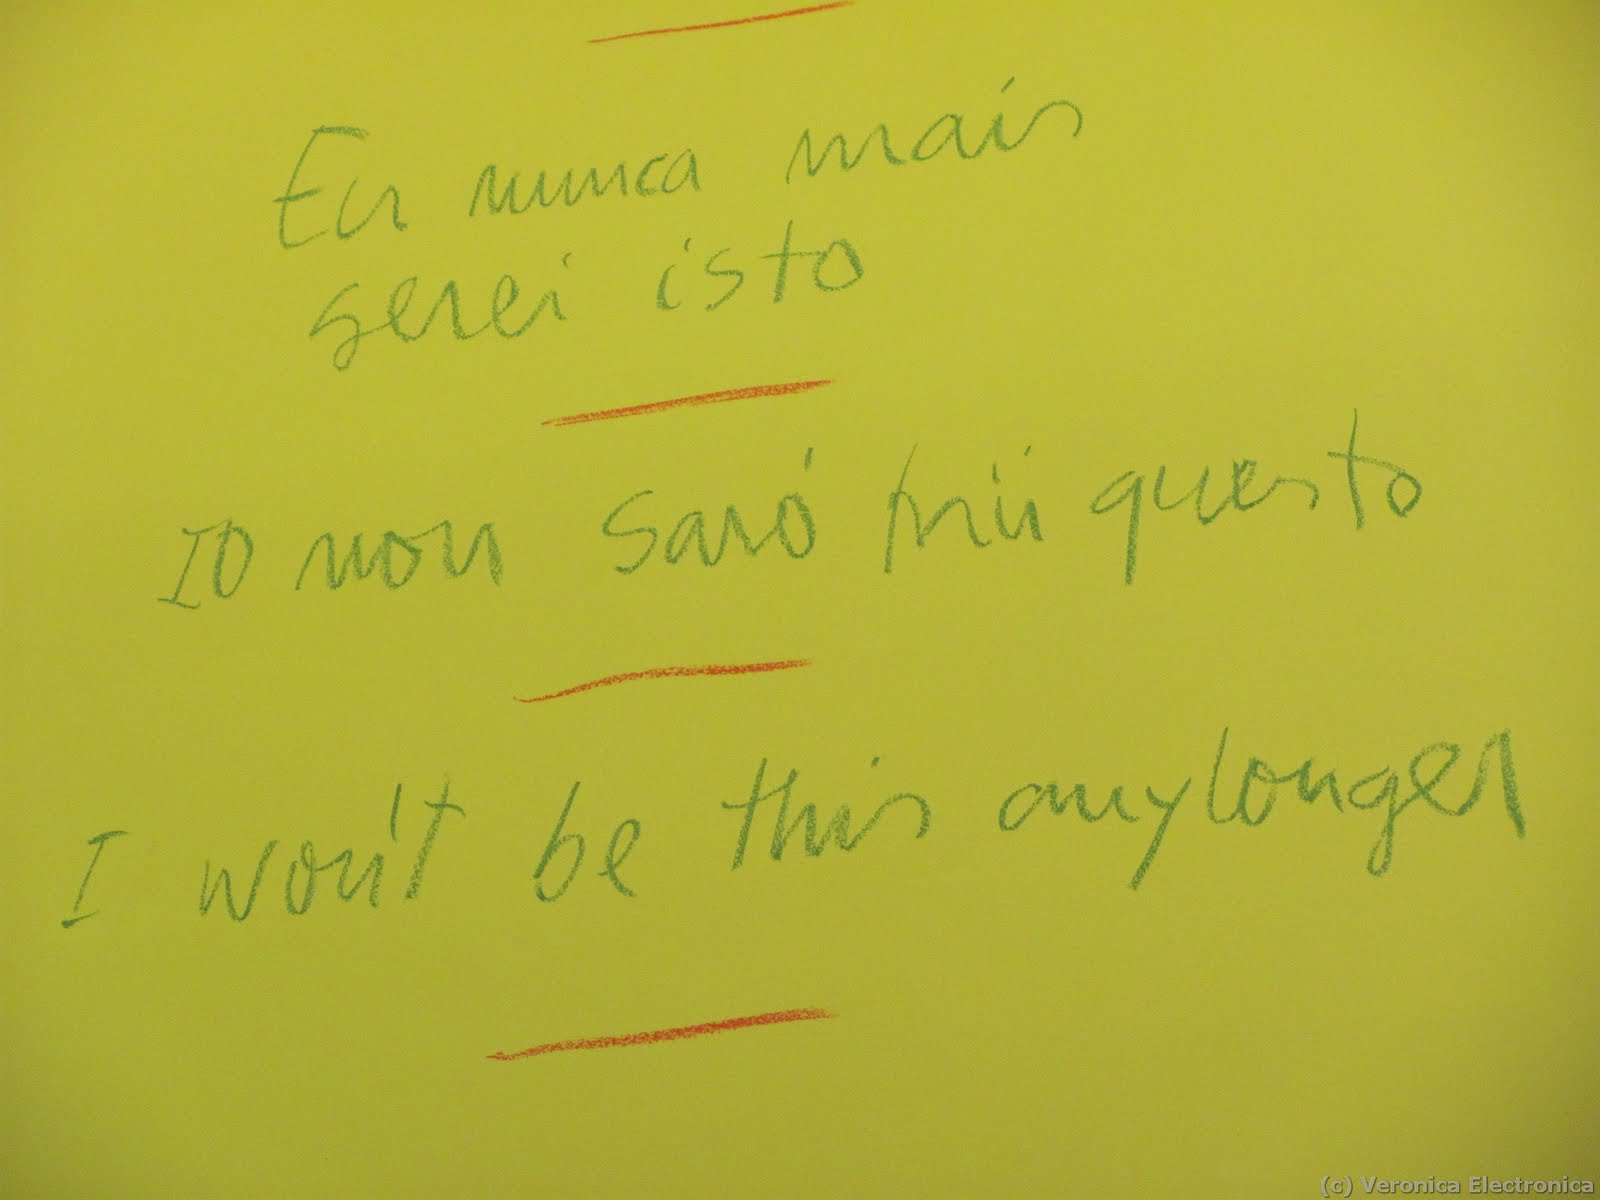 Eu nunca mais
serei isto
IO non saró più questo
I won't be this anylonger
(c) Veronica Electronica